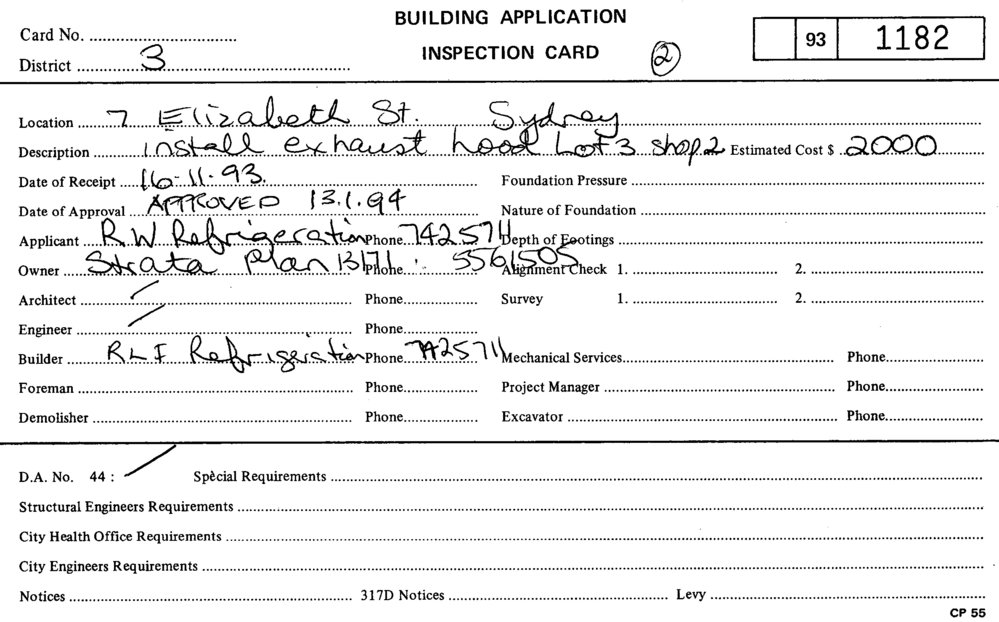 BUILDING APPLICATION
INSPECTION CARD
Card No.
District 3
2
93 1182
Location 7 Elizabeth St. Sydney
Description install exhaust hood Lot 3 shop 2 Estimated Cost $ 2000
Date of Receipt 16-11-93. Foundation Pressure
Date of Approval APPROVED 13.1.94 Nature of Foundation
Applicant RW Refrigeration Phone 7425711 Depth of Footings
Owner Strata Plan 13171 Phone 5561505 Alignment Check 1. 2.
Architect Phone Survey 1. 2.
Engineer Phone
Builder Refrigeration Phone 7425711 Mechanical Services Phone
Foreman Phone Project Manager Phone
Demolisher Phone Excavator Phone
D.A. No. 44 : Spècial Requirements
Structural Engineers Requirements
City Health Office Requirements
City Engineers Requirements
Notices 317D Notices Levy
CP 55